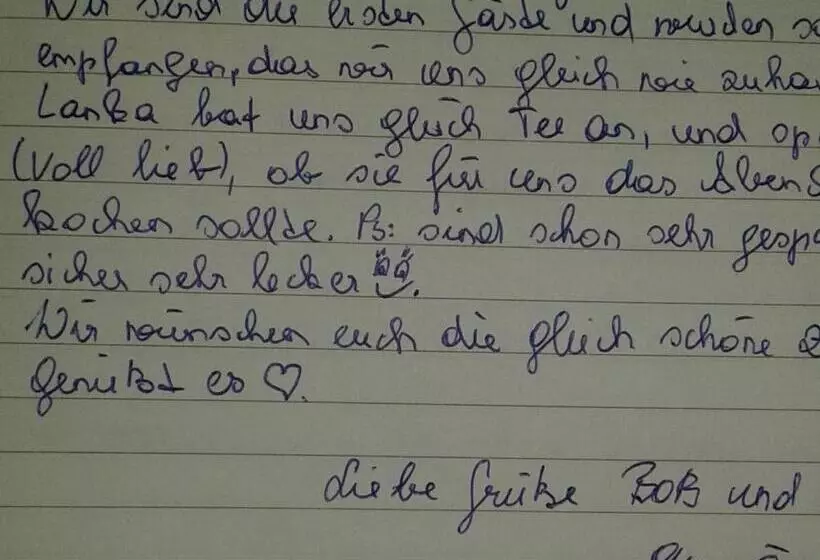 Wir sind die ersten Gäste und wurden so
empfangen, das wir uns gleich wie zuha
Lanka bat uns gleich Tee an, und op
(Voll lieb), ob sie für uns das Abend
kochen sollte. Ps: sind schon sehr gespa
sicher sehr lecker
Wir wünschen euch die gleich schöne
genüßt es ♡.
Liebe Grüße Bob und